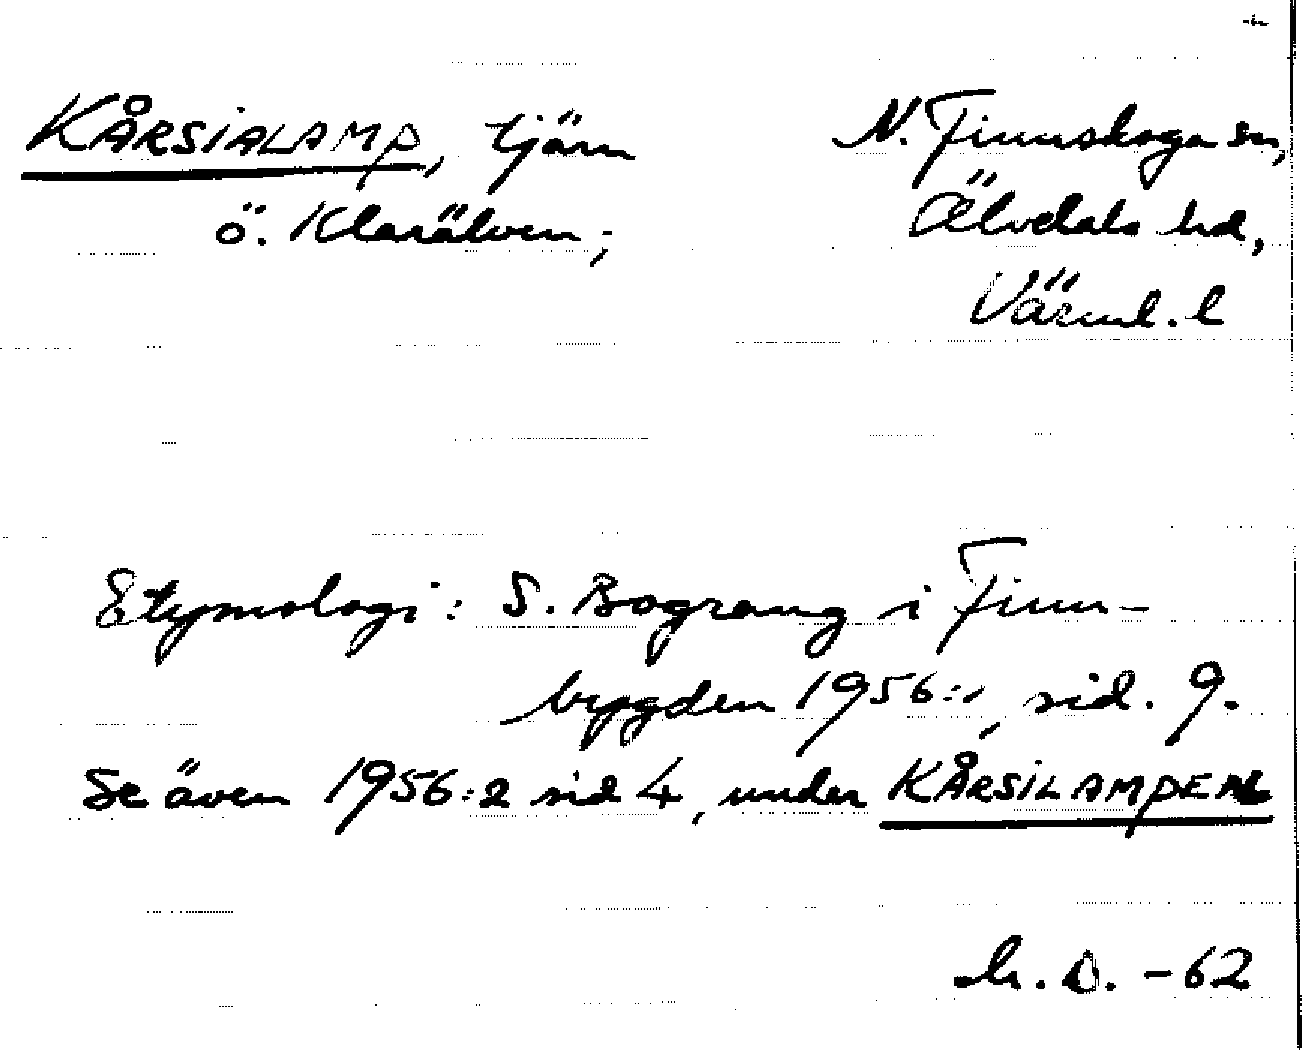 KÅRSIALAMP, tjärn
N. Finnskoga sn,
ö. Klarälven;
Älvdals hd,
Värml. l
Etymologi: S. Bograng i Finn-
bygden 1956:1, sid. 9.
Se även 1956:2 sid 4, under KÅRSILAMPEN
D. -62